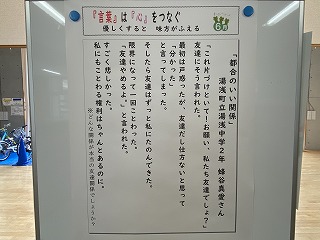 『言葉』は『心』をつなぐ
優しくすると　味方がふえる
6月
「都合のいい関係」
湯浅町立湯浅中学２年　蜂谷真愛さん
「これ片づけといて！お願い、私たち友達でしょ？」
友達にそう言われた。
最初は戸惑ったが、友達だし仕方ないと思って
「分かった」
と言ってしまった。
そしたら友達はずっと私にたのんできた。
限界になって一回ことわった。
「友達やめるよ。」と言われた。
すごく悲しかった。
私にもことわる権利はちゃんとあるのに。
※どんな関係が本当の友達関係でしょうか？